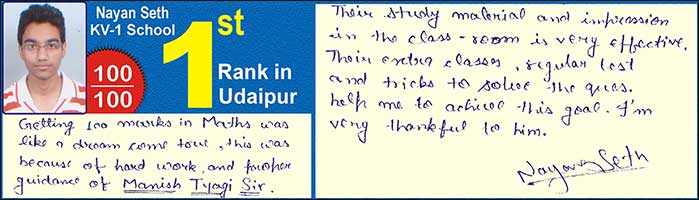 Nayan Seth
KV-1 School
100
100
1st
Rank in
Udaipur
Getting 100 marks in Maths was
like a dream come true, this was
because of hard work, and proper
guidance of Manish Tyagi Sir.
Their study material and impression
in the class-room is very effective.
Their extra classes, regular test
and tricks to solve the ques.
help me to achieve this goal. I'm
very thankful to him.
Nayan Seth